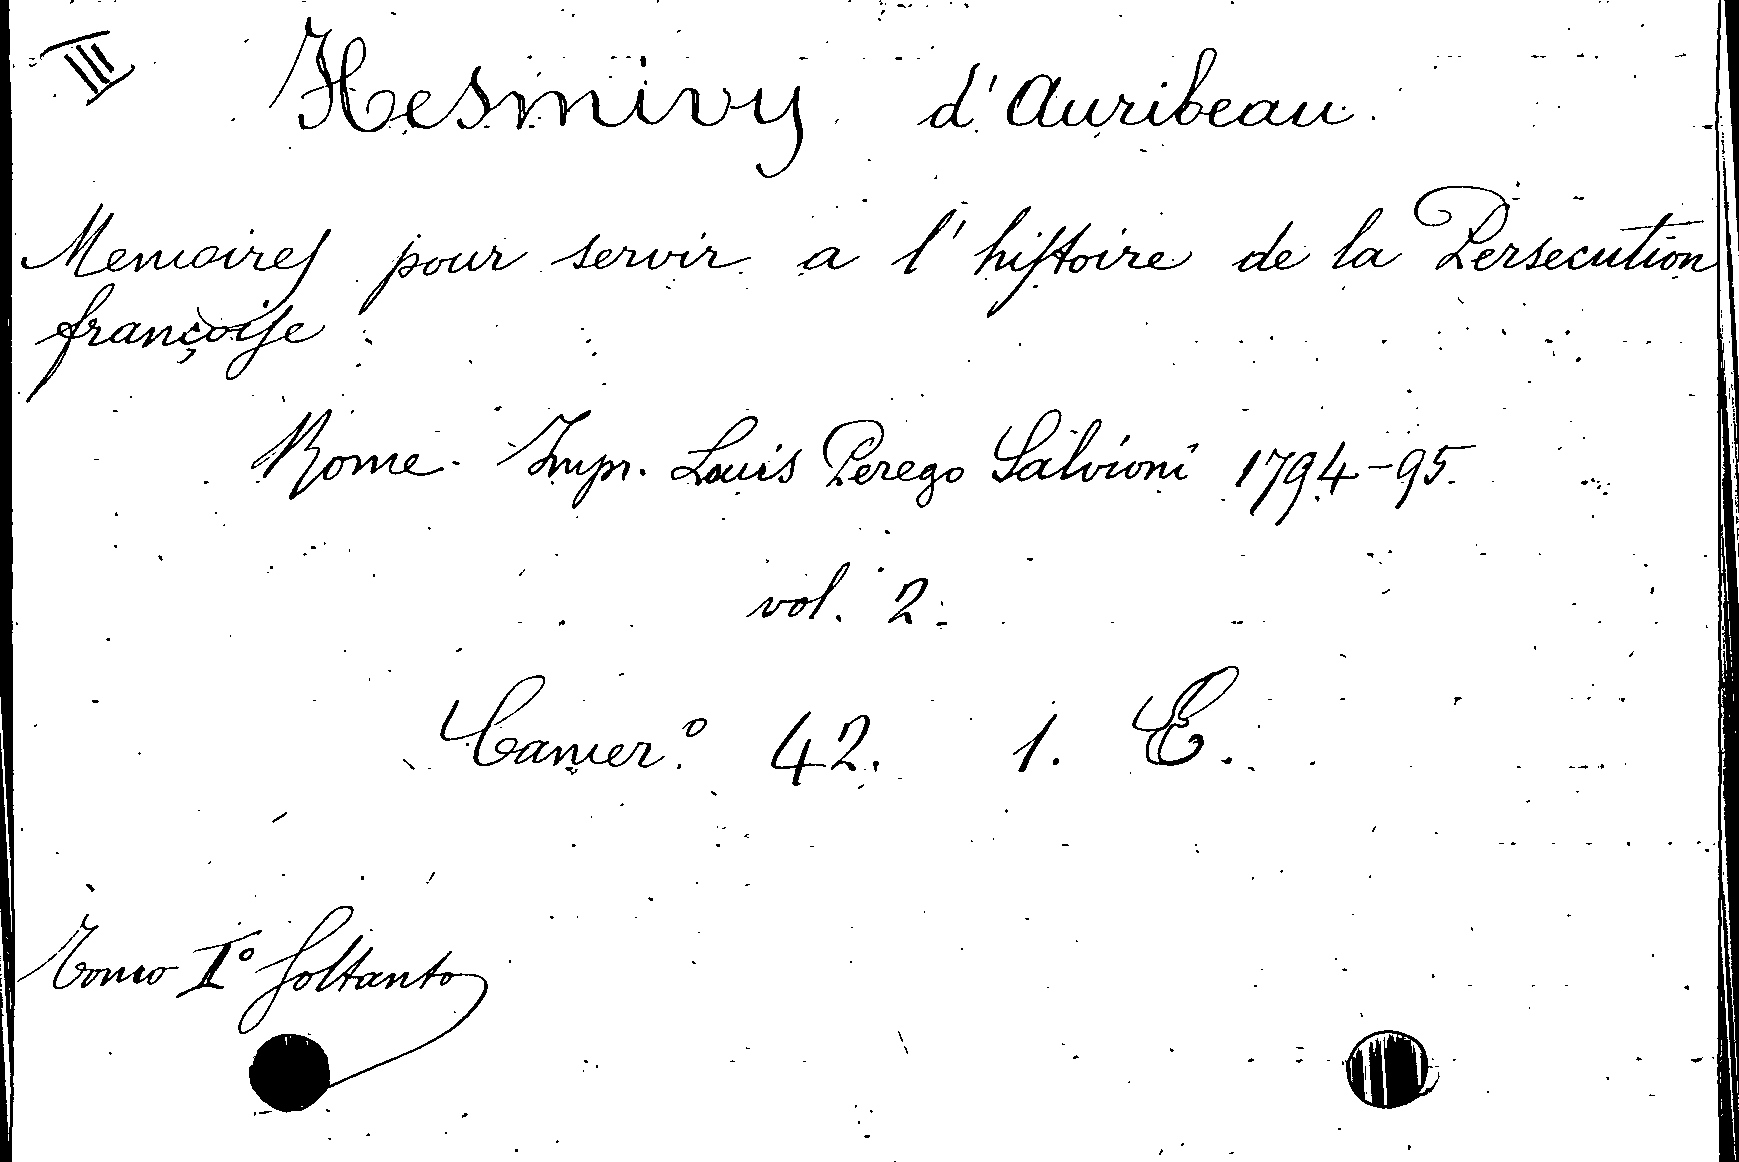 III
Hesmivy d'Auribeau
Memoires pour servir a l'histoire de la Persecution
françoise
Rome. Imp. Louis Perego Salvioni 1794-95.
vol. 2.
Camer.º 42. 1. E.
Tomo Iº soltanto